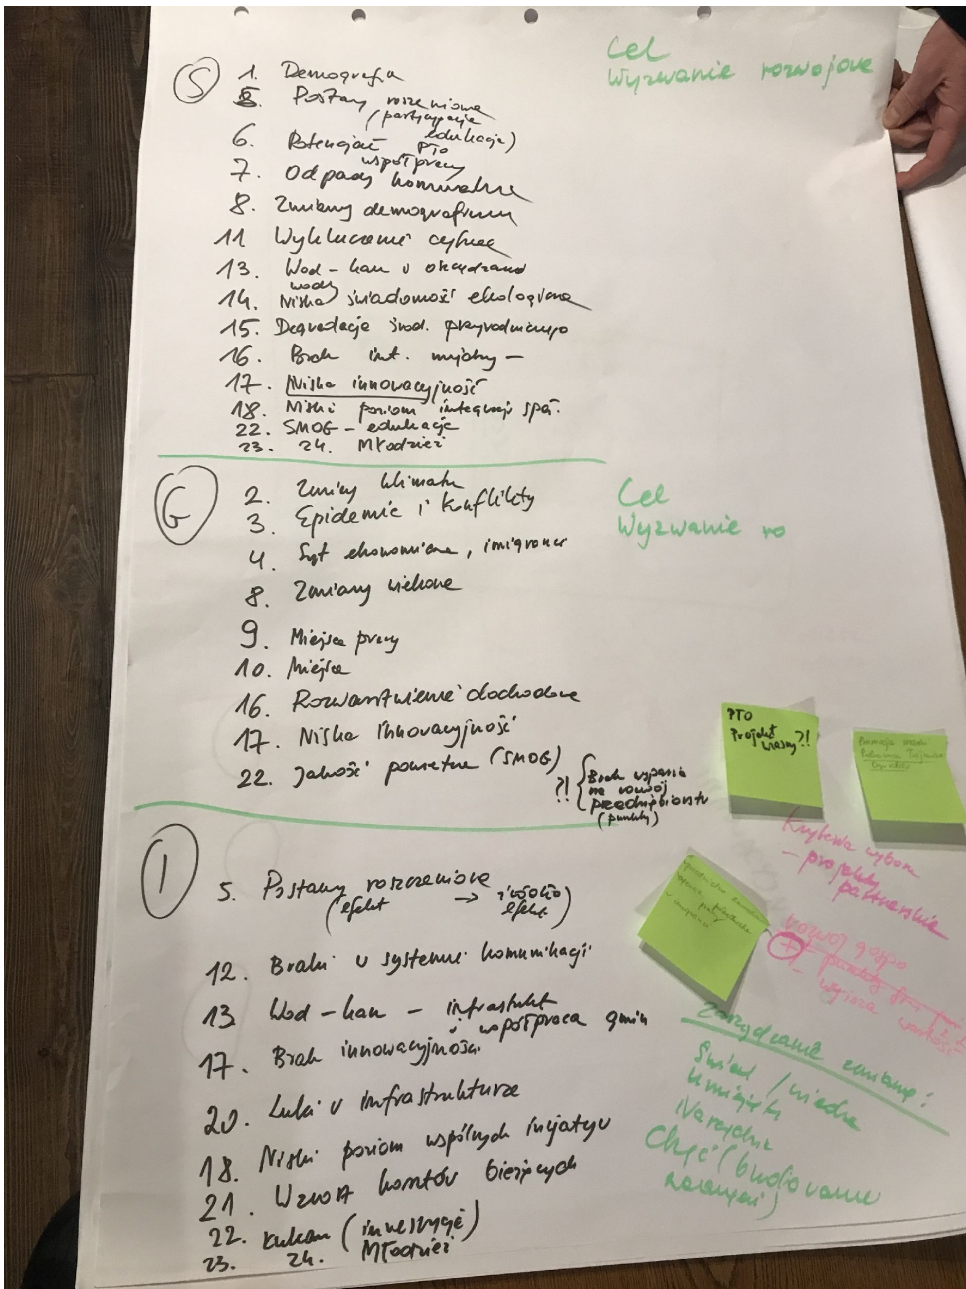 Cel
Wyzwanie rozwojowe
S
1. Demografia
5. Postawy roszczeniowe
(partycypacja
edukacja)
6. Potencjał PTO
współpracy
7. Odpady komunalne
8. Zmiany demograficzne
11 Wykluczenie cyfrowe
13. Wod-kan
wody
14. Niska świadomość ekologiczna
15. Degradacja środ. przyrodniczego
16. Brak int.
17. Niska innowacyjność
18. Niski poziom integracji społ.
22. SMOG - edukacja
23. 24. Młodzież
G
Cel
Wyzwanie ro
2. Zmiany klimatu
3. Epidemie i konflikty
4. Syt ekonomiczna, imigranci
8. Zmiany wiekowe
9. Miejsca pracy
10. Miejsca
16. Rozwarstwienie dochodowe
17. Niska innowacyjność
22. Jakość powietrza (SMOG)
?! Brak wsparcia
na rozwój
przedsiębiorstw
(punkty)
PTO
Projekt
własny?!
Kryteria wyboru
- projekty
partnerskie
I
5. Postawy roszczeniowe
(efekt →
efekt)
12. Braki w systemie komunikacji
13. Wod-kan - infrastrukt
i współpraca gmin
17. Brak innowacyjności
20. Luki w infrastrukturze
18. Niski poziom wspólnych inicjatyw
21. Wzrost kosztów bieżących
22. (inwestycje)
23. 24. Młodzież
rozwój gosp
+
- wyższa wartość
Zarządzanie zmianą:
Świad / wiedza
Umiejęt
Narzędzia
Chęć (budowanie